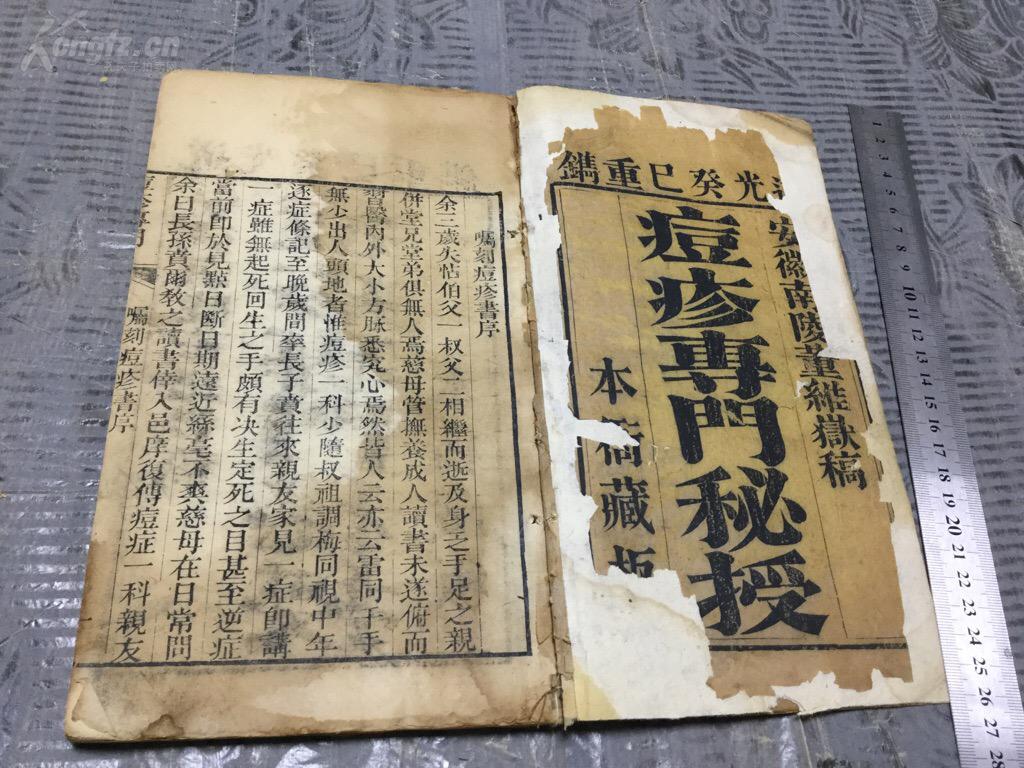 光癸巳重鐫
安徽南陵董維嶽稿
痘疹專門秘授
本衙藏板
囑刻痘疹書序
余二歲失怙伯父一叔父二相繼而逝及身之手足之親
併堂兄堂弟俱無人焉慈母管撫養成人讀書未遂俯而
習醫內外大小方脉悉究心焉然皆人云亦云雷同千手
無少出人頭地者惟痘疹一科少隨叔祖調梅同視中年
逐症條記至晚歲間率長子賁往來親友家見一症即講
一症雖無起死回生之手頗有决生定死之目甚至逆症
當前即於見點日斷日期遠近絲毫不爽慈母在日常問
余曰長孫賁爾教之讀書倖入邑庠復傳痘症一科親友
囑刻痘疹書序
Kongfz.cn
1
2
3
4
5
6
7
8
9
10
11
12
13
14
15
16
17
18
19
20
21
22
23
24
25
26
27
28